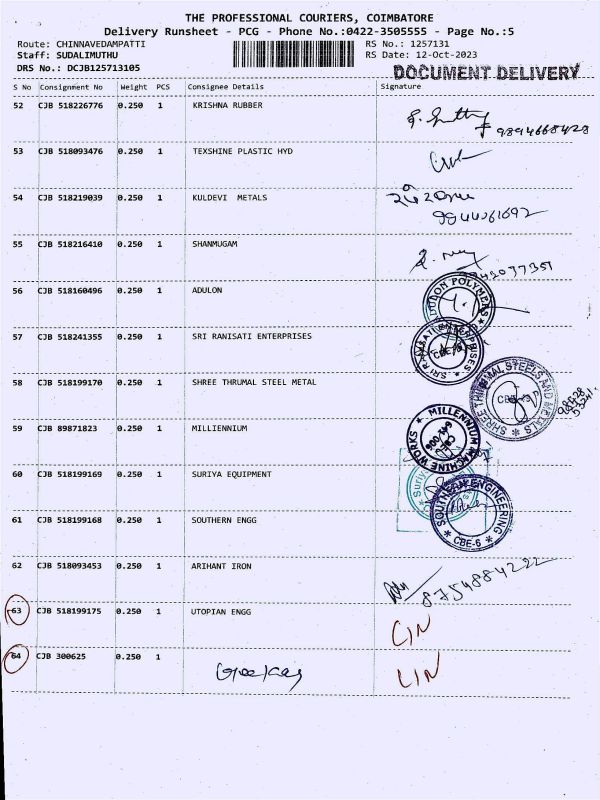 THE PROFESSIONAL COURIERS, COIMBATORE
Delivery Runsheet - PCG - Phone No.:0422-3505555 - Page No.:5
Route: CHINNAVEDAMPATTI RS No.: 1257131
Staff: SUDALIMUTHU RS Date: 12-Oct-2023
DRS No.: DCJB125713105 DOCUMENT DELIVERY
S No Consignment No Weight PCS Consignee Details Signature
52 CJB 518226776 0.250 1 KRISHNA RUBBER
9894668428
53 CJB 518093476 0.250 1 TEXSHINE PLASTIC HYD
54 CJB 518219039 0.250 1 KULDEVI METALS
55 CJB 518216410 0.250 1 SHANMUGAM
56 CJB 518160496 0.250 1 ADULON
POLYMERS
57 CJB 518241355 0.250 1 SRI RANISATI ENTERPRISES
SRI RANISATI ENTERPRISES
58 CJB 518199170 0.250 1 SHREE THRUMAL STEEL METAL
SHREE THIRUMAL STEELS AND METALS
59 CJB 89871823 0.250 1 MILLIENNIUM
MILLENNIUM MACHINE WORKS
60 CJB 518199169 0.250 1 SURIYA EQUIPMENT
Suriya
61 CJB 518199168 0.250 1 SOUTHERN ENGG
SOUTHERN ENGINEERING
CBE-6
62 CJB 518093453 0.250 1 ARIHANT IRON
8754884222
63 CJB 518199175 0.250 1 UTOPIAN ENGG
64 CJB 300625 0.250 1